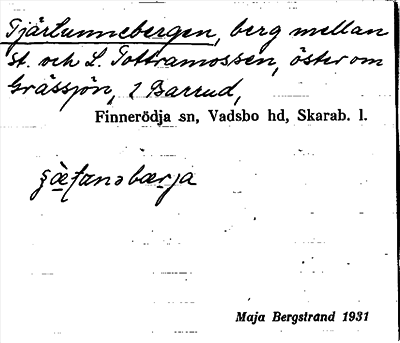 Tjärtunnebergen, berg mellan
St. och L. Tottramossen, öster om
Grässjön, i Barrud,
Finnerödja sn, Vadsbo hd, Skarab. l.
Maja Bergstrand 1931